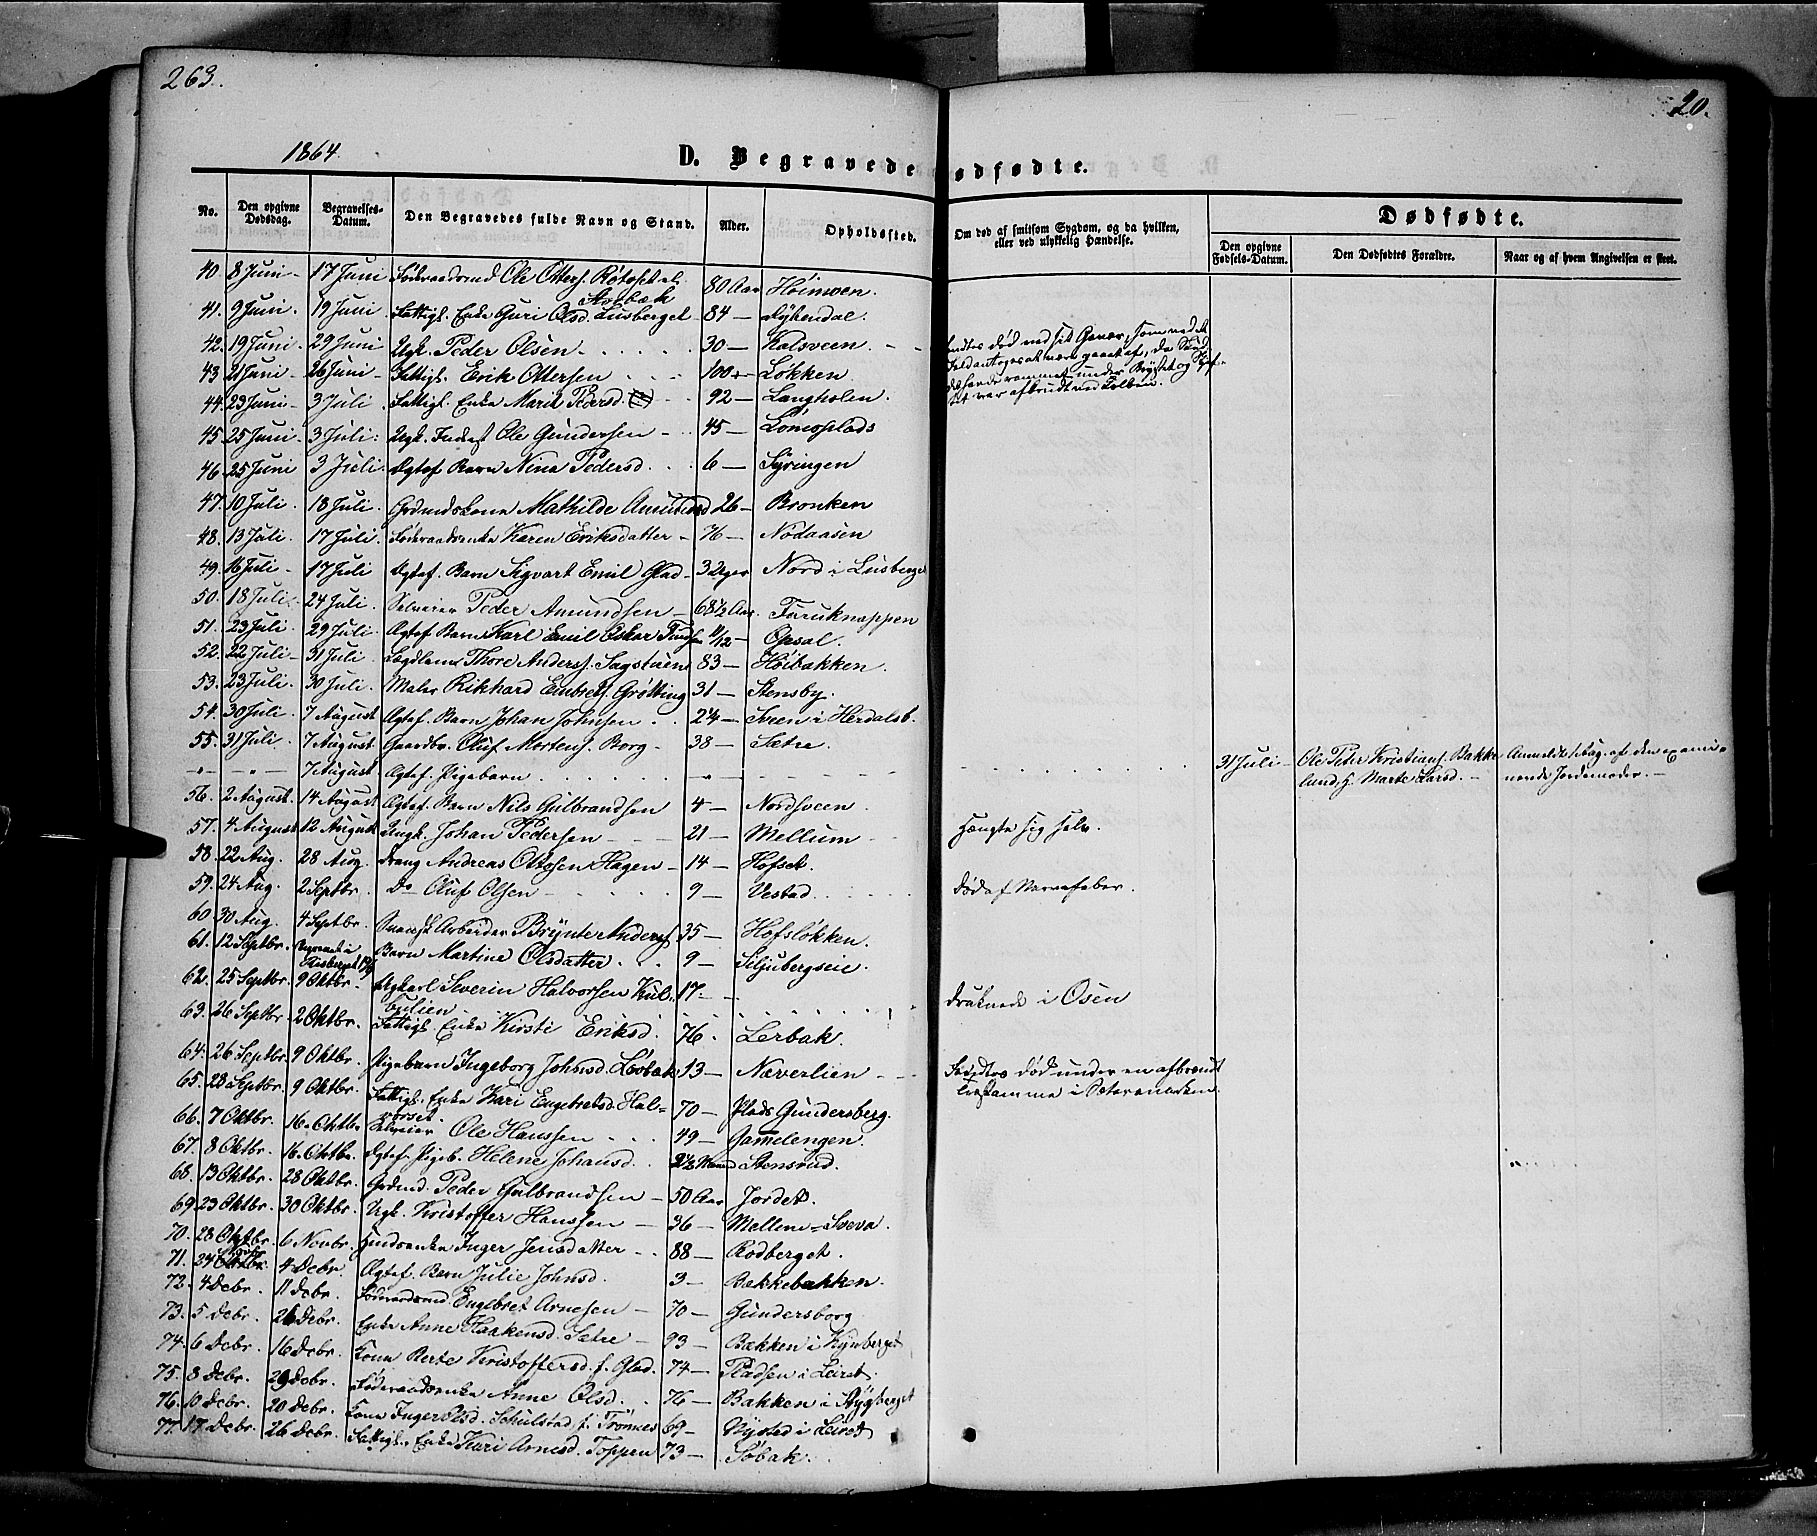 263.
20.
1864.
D. Begravede
ødfødte.
No.
Den opgivne Dødsdag.
Begravelses-Datum.
Den Begravedes fulde Navn og Stand.
Alder.
Opholdssted.
Om død af smitsom Sygdom, og da hvilken, eller ved ulykkelig Hændelse.
Dødfødte.
Den opgivne Fødsels-Datum.
Den Dødfødtes Forældre.
Naar og af hvem Angivelsen er skeet.
40. 8 Juni 17 Juni Føderaadsmd Ole Otters. 80 Aar Høimoen.
41. 9 Juni. 19 Juni Fattigl. Enke Guri Olsd. Lusberget 84 — Nyhendal.
42. 19 Juni. 29 Juni Ugk. Peder Olsen 30 — Kalsveen.
43 21 Juni 26 Juni Fattigl. Erik Ottersen 100 Løkken.
44. 23 Juni 3 Juli. Fattigl. Enke Marit Pedersd. 92 — Langholen.
45. 25 Juni 3 Juli. Ugk. Inderst Ole Gundersen 45 — Lomoplads
46 25 Juni 3 Juli. Ægtef. Barn Nina Pedersd. 6 — Syringen
47. 10 Juli. 18 Juli. Grdmandskone Mathilde Amundsd 26 — Bronken
48. 13 Juli. 17 Juli. Føderaadsenke Karen Eriksdatter 76 — Nodaasen
49. 16 Juli 17 Juli Ægtef. Barn Sigvart Emil Glad 3 Uger Nord i Lusberget
50. 18 Juli 24 Juli. Selveier Peder Amundsen 68½ Aar. Furuknappen
51. 23 Juli. 29 Juli. Ægtef Barn Karl Emil Oskar 11/12 — Opsal.
52. 22 Juli 31 Juli. Lægdslem Thore Anders. Sagstuen 83 — Høibakken.
53. 23 Juli. 30 Juli. Maler Rikhard Embrets. Grøtting 31 — Stensby.
54. 30 Juli. 7 August Ægtef. Barn Johan Johnsen 2¼ — Sveen i Herdalsb.
55. 31 Juli. 7 August. Gaardbr. Oluf Mortens. Borg. 38 — Sætre.
7 August Ægtef. Pigebarn. 31 Juli Ole Peter Kristians. Bakke Anmeldt s. Dag. af den exami-
lund, H. Marte Larsd. nerede Jordemoder.
56. 2 August. 14 August Ægtef. Barn Nils Gulbrandsen 4 — Nordsveen.
57. 4 August 12 August Ungk. Johan Pedersen 21 — Mellum Hængte sig selv.
58. 22 Aug. 28 Aug. Dreng Andreas Ottosen Hagen 14 — Hofset.
59. 24 Aug. 2 Septbr. Do Oluf Olsen 9 — Vestad. Død af Nervefeber.
60. 30 Aug. 4 Septbr. Svensk Arbeider Brynte Anders. 35 — Hofsløkken.
61. 12 Septbr. Barn Martine Olsdatter 9 — Siljubergseie.
62. 25 Septbr 9 Oktbr. Ugkarl Severin Halvorsen Kul- 17 — Druknede i Osen
bulien
63. 26 Septbr 2 Oktbr. Fattigl. Enke Kirsti Eriksd. 76. Lerbak.
64. 26 Septbr. 9 Oktbr. Pigebarn Ingeborg Johnsd. Løvbak 13 — Næverlien Fandtes død under en afbrændt
65. 28 Septbr. 9 Oktbr. Fattigl. Enke Kari Engebretsd. Hal- 70 — Plads Gundersberg. stamme i Sæterensmarken.
vorset
66. 7 Oktbr. 16. Oktbr. Selveier Ole Hanssen 49 — Gamlengen.
67. 8 Oktbr. 16. Oktbr. Ægtef. Pigeb. Helene Johansd. 2½ Maaned Stensrud.
68. 13 Oktbr. 23 Oktbr. Grdmd. Peder Gulbrandsen 50 Aar Jordet.
69. 23 Oktbr. 30 Oktbr. Ugk. Kristoffer Hanssen 36 — Mellem-Sveva.
70. 28 Oktbr. 6 Novbr. Huusenke Inger Jensdatter 88 — Rodberget.
71. 24 Novbr. 4 Debr. Ægtef. Barn Julie Johnsd. 3 — Bækkebakken.
72. 4 Debr. 11 Debr. Føderaadsmd Engebret Arnesen 70 — Gundersborg
73. 5 Debr. 26 Debr. Enke Anne Haakensd. Sætre 93 — Bækken i Kynberget
74. 6 Debr. 16 Debr. Kone Berte Kristoffersd. f. Glad. 74 — Pladsen i Leiret.
75. 8 Debr. 29 Debr. Føderaadsenke Anne Olsd. 76 — Bakken i Rygberget
76. 10 Debr. 20 Debr. Kone Inger Olsd. Schulstad f. Tronnes 69 — Nysted i Leiret
77. 17 Debr. 26 Debr. Fattigl. Enke Kari Arnesd. Toppen 73 — Søbak.